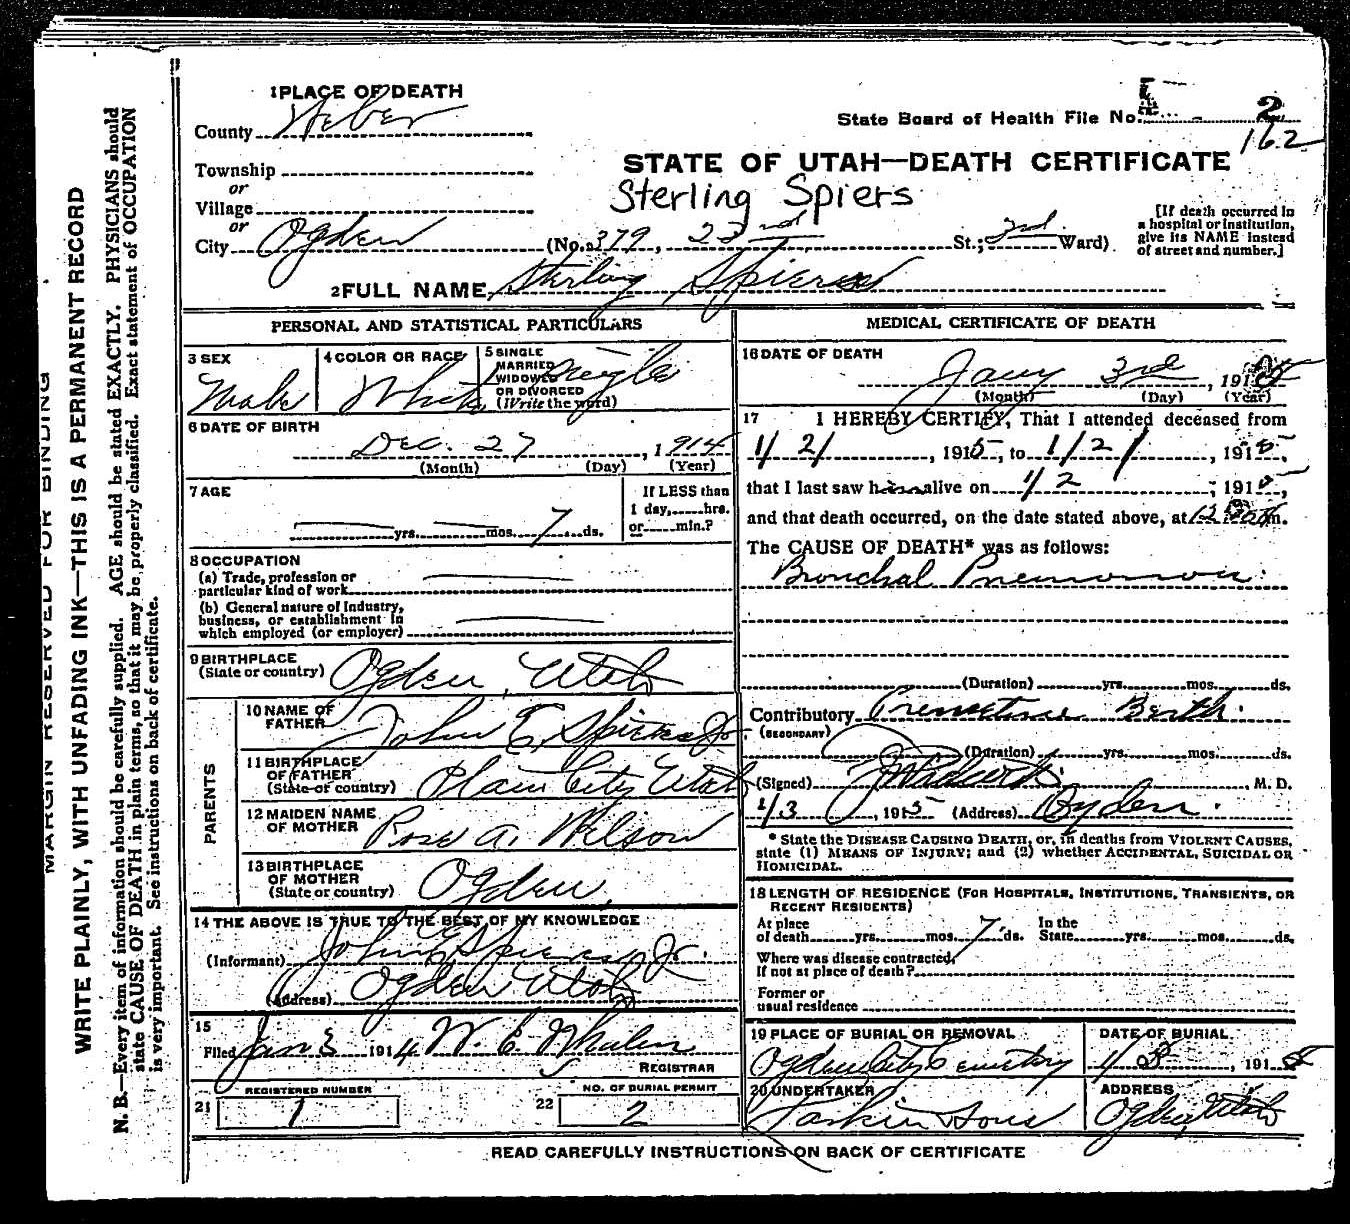 1 PLACE OF DEATH
County Weber
State Board of Health File No. 2
162
Township
or
Village
or
City Ogden (No. 379, 23rd St.; 3rd Ward)
STATE OF UTAH—DEATH CERTIFICATE
Sterling Spiers
[If death occurred in
a hospital or institution,
give its NAME instead
of street and number.]
2 FULL NAME Sterling Spiers
MARGIN RESERVED FOR BINDING
WRITE PLAINLY, WITH UNFADING INK—THIS IS A PERMANENT RECORD
N. B.—Every item of information should be carefully supplied. AGE should be stated EXACTLY. PHYSICIANS should
state CAUSE OF DEATH in plain terms, so that it may be properly classified. Exact statement of OCCUPATION
is very important. See instructions on back of certificate.
PERSONAL AND STATISTICAL PARTICULARS
3 SEX
Male
4 COLOR OR RACE
White
5 SINGLE
MARRIED
WIDOWED
OR DIVORCED
(Write the word)
Single
6 DATE OF BIRTH
Dec. 27, 1914
(Month) (Day) (Year)
7 AGE
yrs. mos. 7 ds.
If LESS than
1 day, hrs.
or min.?
8 OCCUPATION
(a) Trade, profession or
particular kind of work
(b) General nature of industry,
business, or establishment in
which employed (or employer)
9 BIRTHPLACE
(State or country) Ogden, Utah
PARENTS
10 NAME OF
FATHER John E. Spiers Jr.
11 BIRTHPLACE
OF FATHER
(State or country) Plain City Utah
12 MAIDEN NAME
OF MOTHER Rose A. Wilson
13 BIRTHPLACE
OF MOTHER
(State or country) Ogden,
14 THE ABOVE IS TRUE TO THE BEST OF MY KNOWLEDGE
(Informant) John E. Spiers Jr.
(Address) Ogden Utah
15
Filed Jan 3 1914 W. E. Whalen
REGISTRAR
21 REGISTERED NUMBER
1
22 NO. OF BURIAL PERMIT
2
MEDICAL CERTIFICATE OF DEATH
16 DATE OF DEATH
Jany 3rd, 1915
(Month) (Day) (Year)
17 I HEREBY CERTIFY, That I attended deceased from
1/2/, 1915, to 1/2/, 1915,
that I last saw him alive on 1/2, 1915,
and that death occurred, on the date stated above, at 12 m.
The CAUSE OF DEATH* was as follows:
Bronchal Pnemonia
(Duration) yrs. mos. ds.
Contributory Premature Berth.
(SECONDARY)
(Duration) yrs. mos. ds.
(Signed) , M. D.
1/3, 1915 (Address) Ogden.
* State the DISEASE CAUSING DEATH, or, in deaths from VIOLENT CAUSES,
state (1) MEANS OF INJURY; and (2) whether ACCIDENTAL, SUICIDAL OR
HOMICIDAL.
18 LENGTH OF RESIDENCE (FOR HOSPITALS, INSTITUTIONS, TRANSIENTS, OR
RECENT RESIDENTS)
At place
of death yrs. mos. 7 ds.
In the
State yrs. mos. ds.
Where was disease contracted,
if not at place of death?
Former or
usual residence
19 PLACE OF BURIAL OR REMOVAL
Ogden City Cemetery
DATE OF BURIAL
1/3, 1915
20 UNDERTAKER
Larkin & Sons
ADDRESS
Ogden, Utah
READ CAREFULLY INSTRUCTIONS ON BACK OF CERTIFICATE